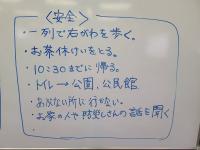 〈安全〉
・一列で右がわを歩く。
・お茶休けいをとる。
・10:30までに帰る。
・トイレ→公園、公民館
・あぶない所に行かない。
・お家の人や防災しさんの話を聞く